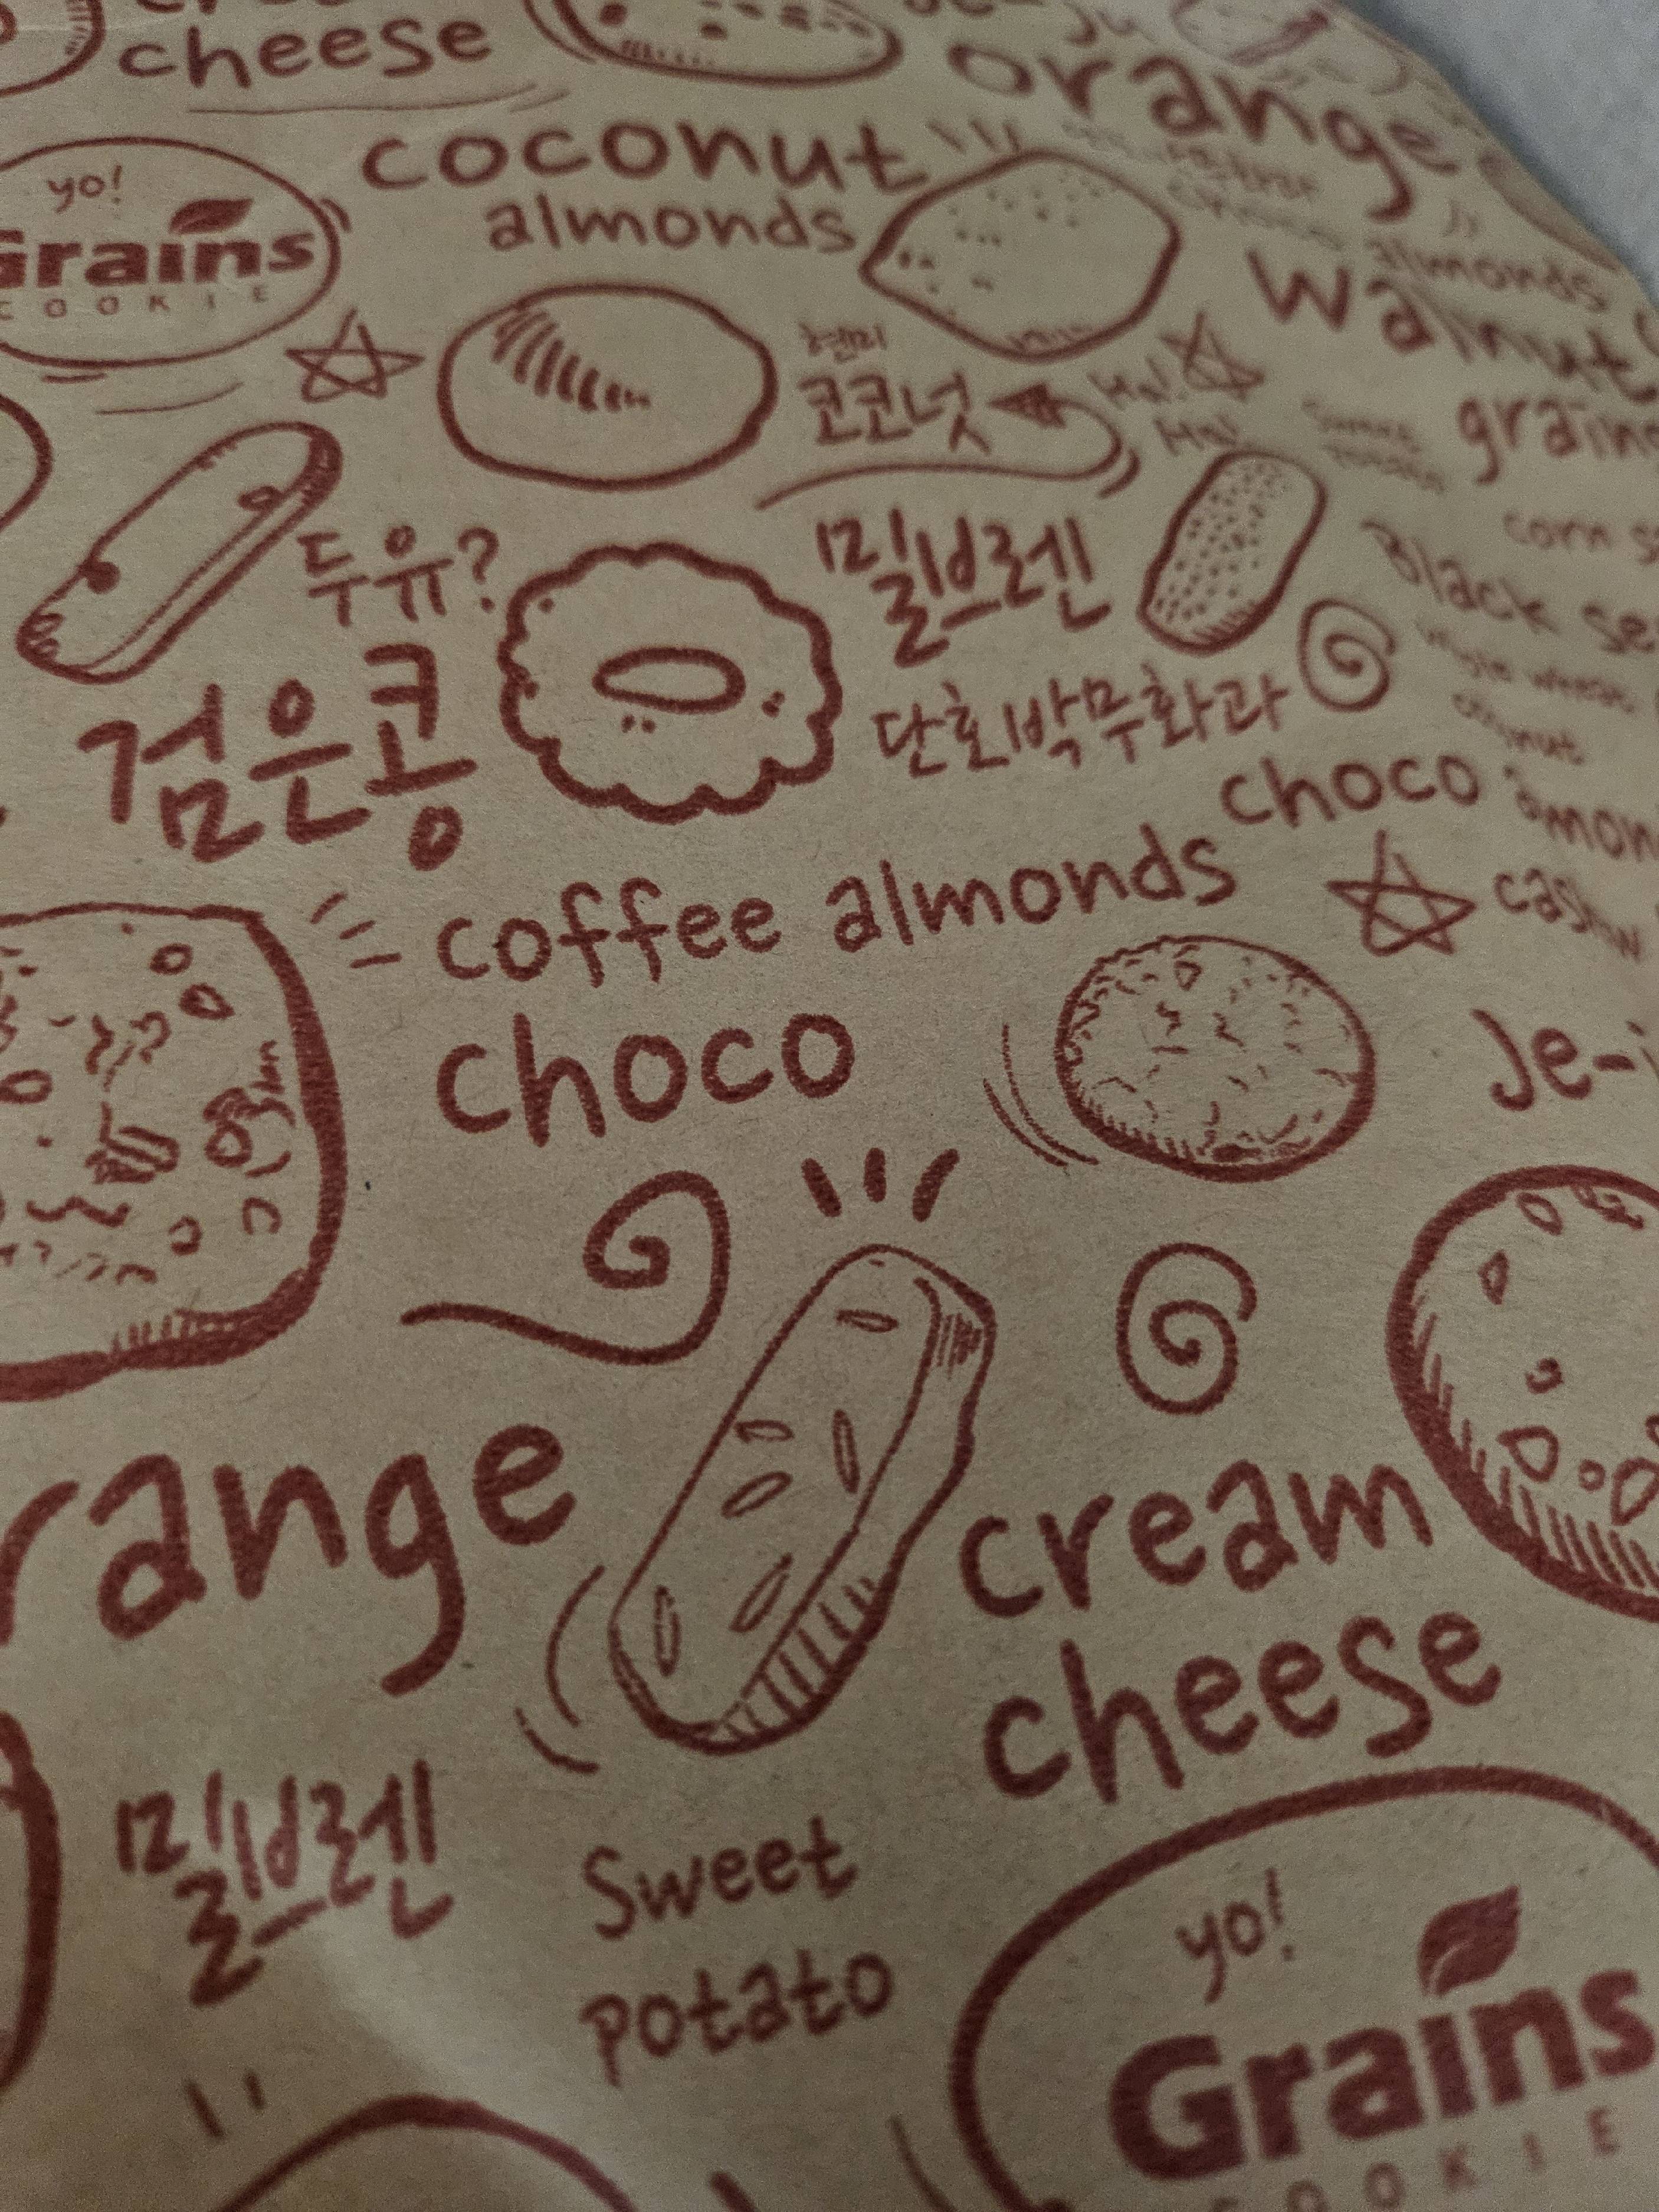 cheese
orange
coconut
almonds
yo!
Grains
COOKIE
almonds
walnut
현미
코코넛
Ha!
Ha!
두유?
밀브렌
corn
Black
검은콩
단호박무화과
choco
coffee almonds
choco
Je-
range
cream
cheese
밀브렌
Sweet
potato
yo!
Grains
COOKIE